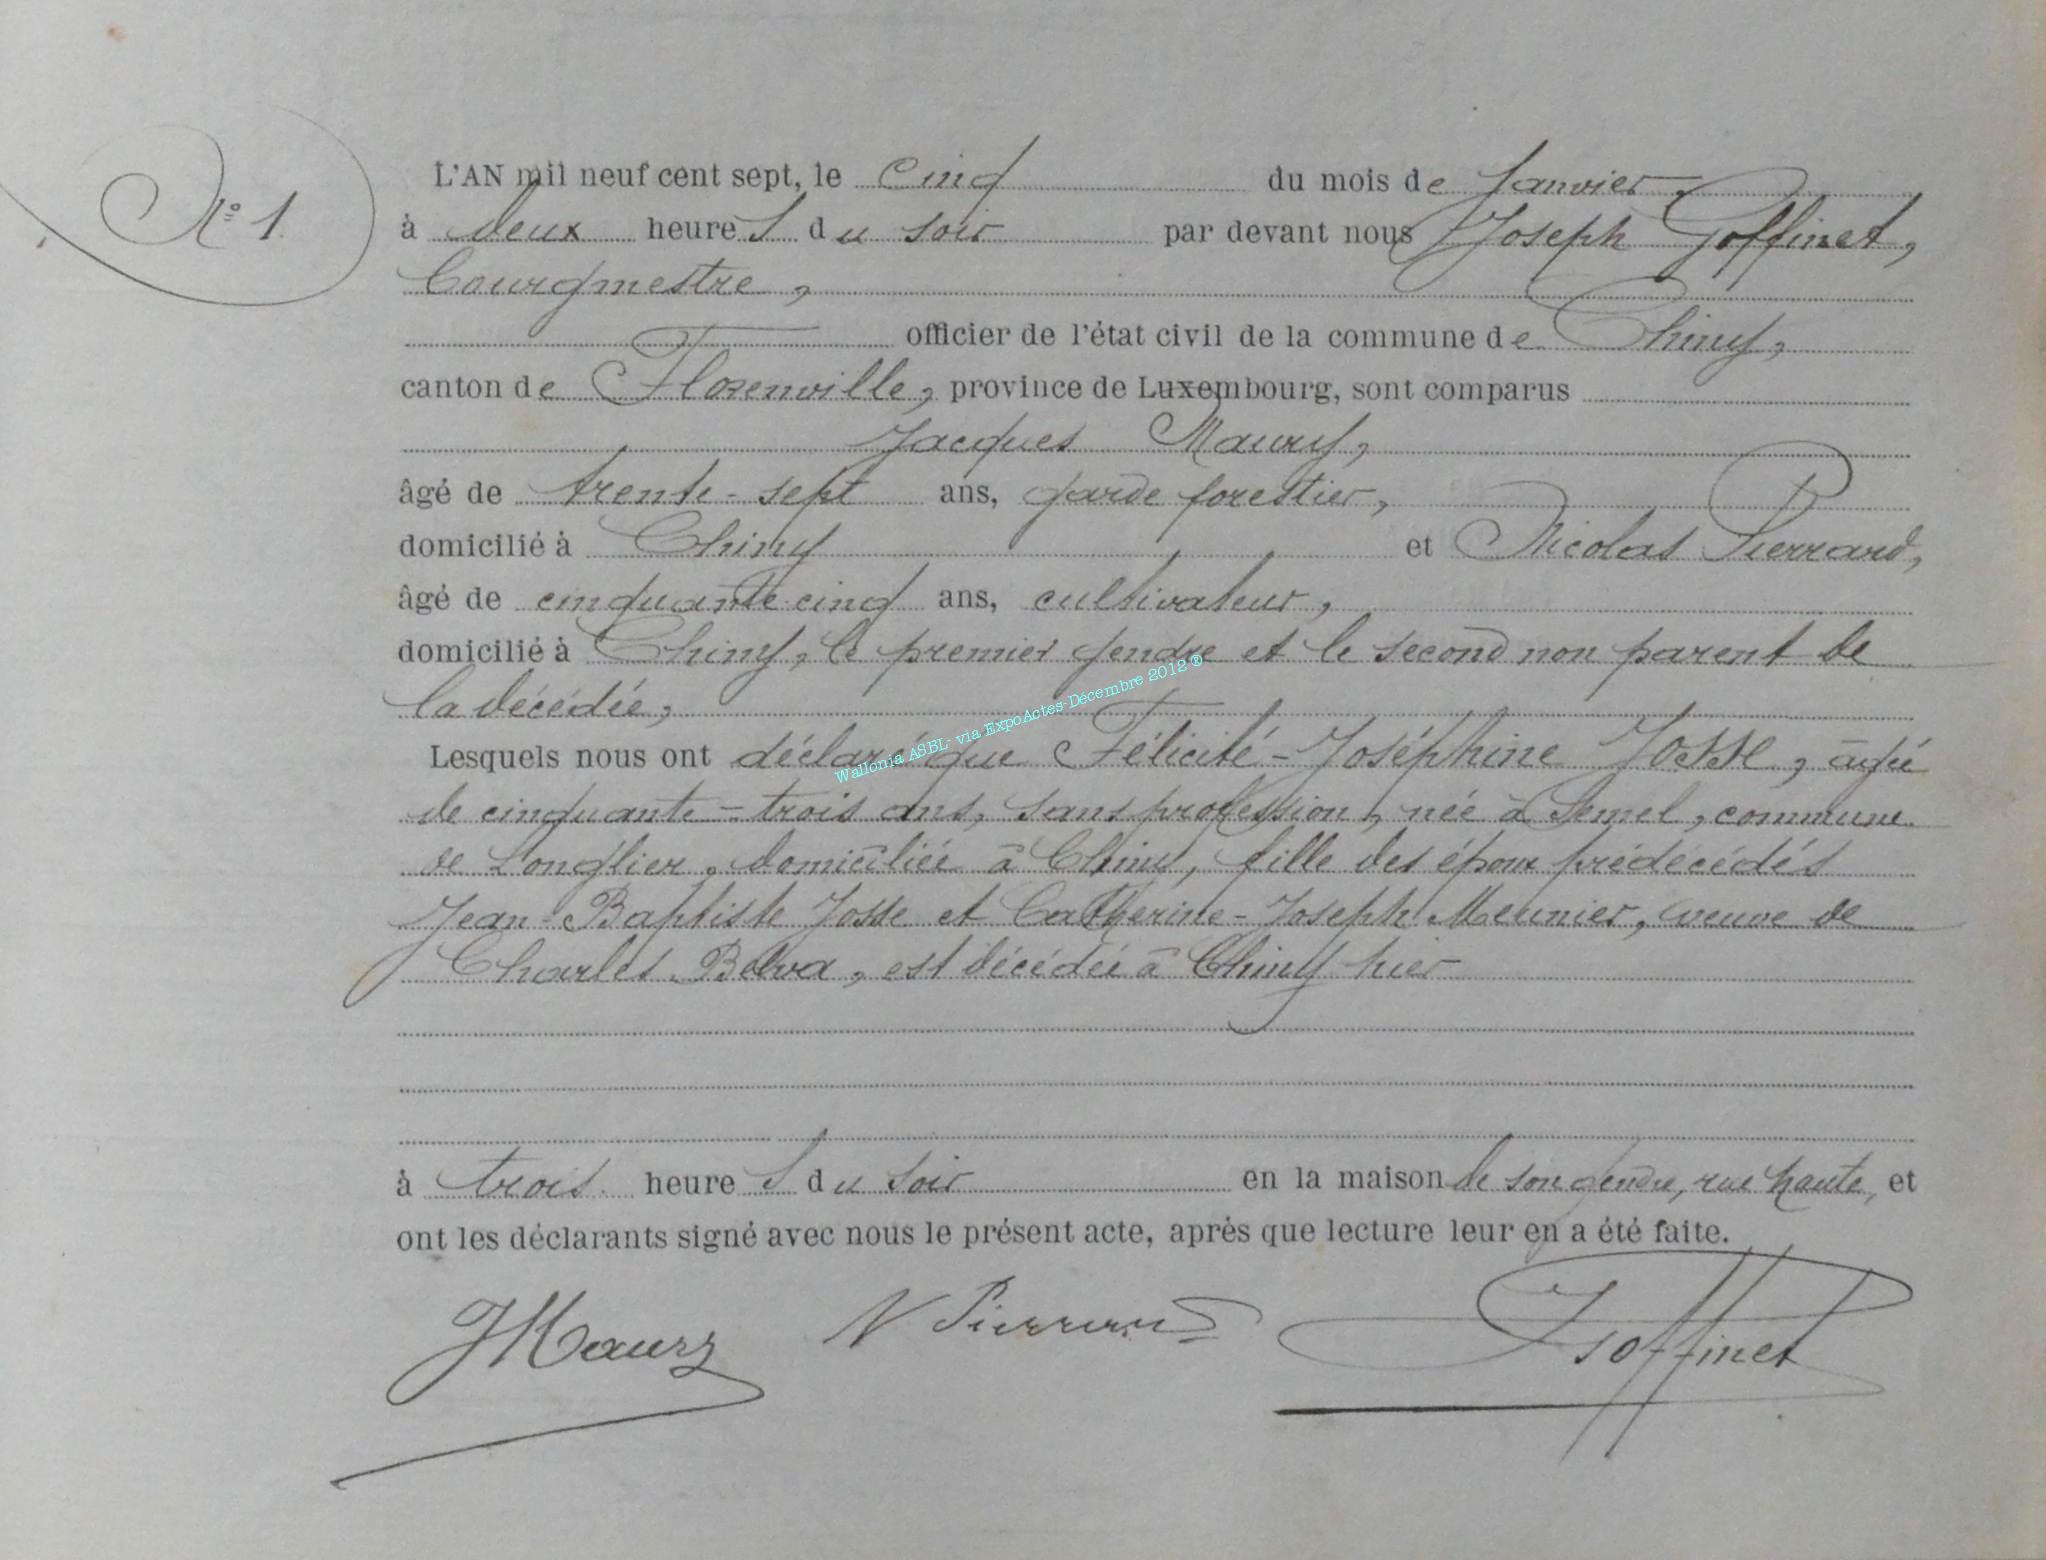 N° 1
L'AN mil neuf cent sept, le cinq du mois de Janvier,
à deux heures du soir par devant nous Joseph Goffinet,
bourgmestre,
officier de l'état civil de la commune de Chiny,
canton de Florenville, province de Luxembourg, sont comparus
Jacques Maury,
âgé de trente-sept ans, garde forestier,
domicilié à Chiny et Nicolas Pierrard,
âgé de cinquante-cinq ans, cultivateur,
domicilié à Chiny, le premier gendre et le second non parent de
la décédée,
Lesquels nous ont déclaré que Félicité-Joséphine Josse, âgée
de cinquante-trois ans, sans profession, née à Semel, commune
de Longlier, domiciliée à Chiny, fille des époux prédécédés
Jean-Baptiste Josse et Catherine-Joseph Meunier, veuve de
Charles Belva, est décédée à Chiny hier
à trois heures du soir en la maison de son gendre, rue haute, et
ont les déclarants signé avec nous le présent acte, après que lecture leur en a été faite.
JMaury N Pierrard JGoffinet
Wallonia ASBL- via ExpoActes-Décembre 2012 ®